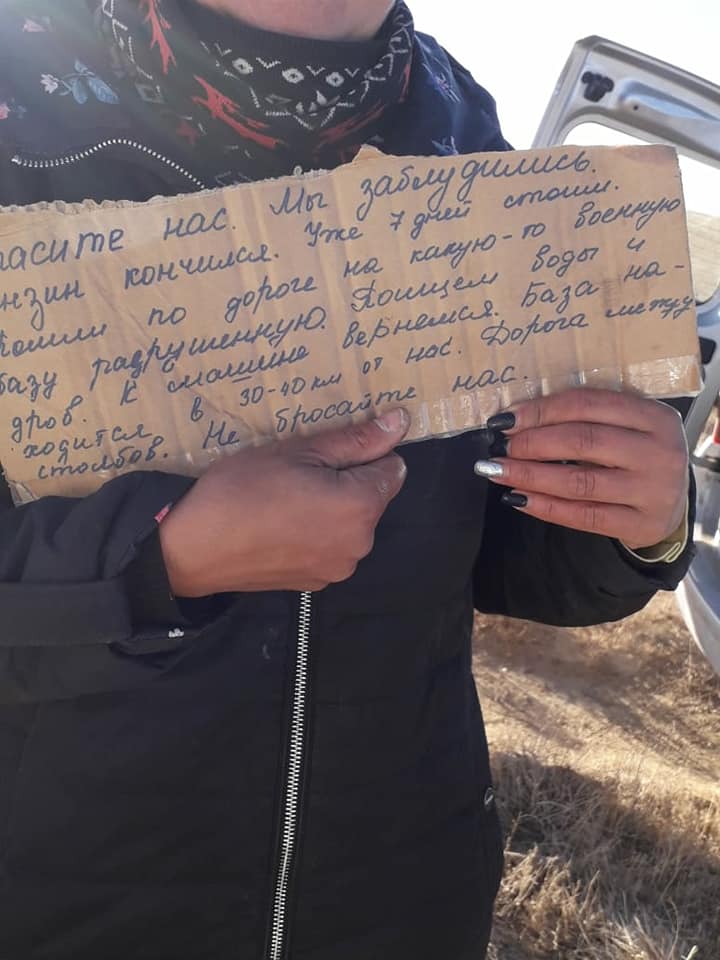 пасите нас. Мы заблудились.
нзин кончился. Уже 7 дней стоим.
Пошли по дороге на какую-то военную
базу разрушенную. Поищем воды и
дров. К машине вернемся. База на-
ходится в 30-40 км от нас. Дорога между
столбов. Не бросайте нас.